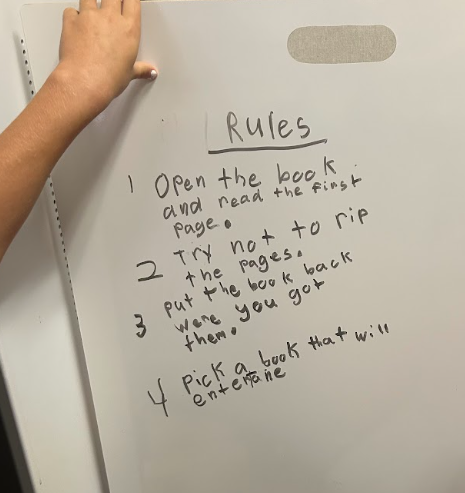 Rules
1 Open the book
and read the first
page.
2 Try not to rip
the pages.
3 put the book back
were you got
them.
4 Pick a book that will
entertane